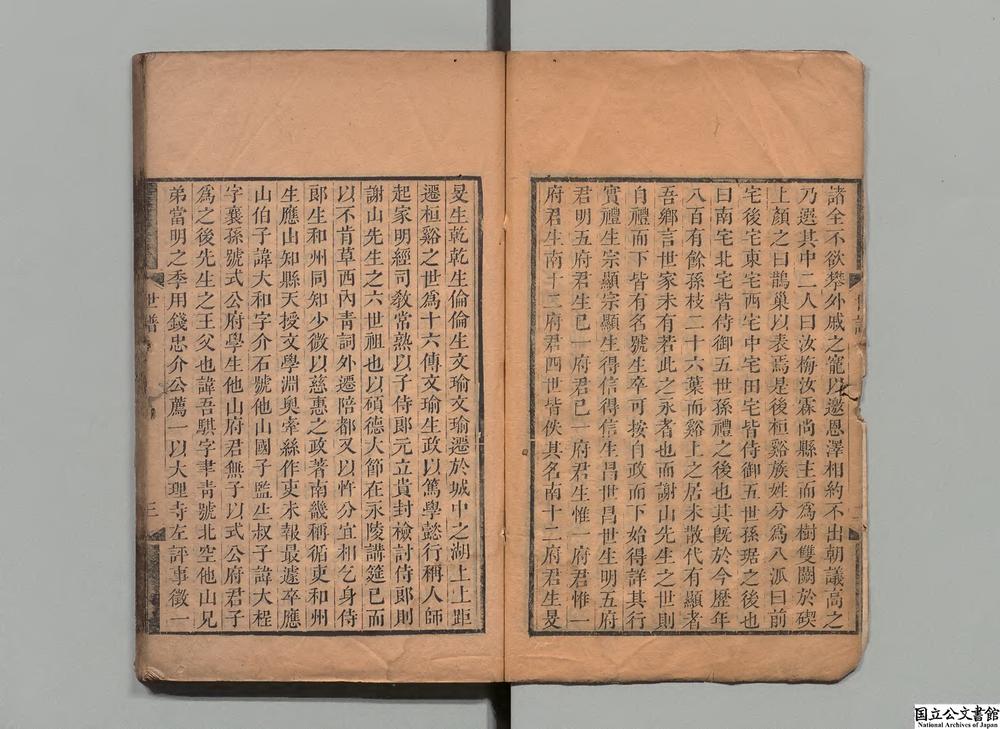 諸全不欲攀外戚之寵以邀恩澤相約不出朝議高之
乃選其中二人曰汝梅汝霖尚縣主而爲樹雙闕於碶
上顏之曰鵲巢以表焉是後桓谿族姓分爲八派曰前
宅後宅東宅西宅中宅田宅皆侍御五世孫琚之後也
曰南宅北宅皆侍御五世孫禮之後也其旣於今歷年
八百有餘孫枝二十六葉而谿上之居未散代有顯者
吾鄉言世家未有若此之永者也而謝山先生之世則
自禮而下皆有名號生卒可按自政而下始得詳其行
實禮生宗顯宗顯生得信得信生昌世昌世生明五府
君明五府君生巳一府君巳一府君生惟一府君惟一
府君生南十二府君四世皆佚其名南十二府君生旻
旻生乾乾生倫倫生文瑜文瑜遷於城中之湖上上距
遷桓谿之世爲十六傳文瑜生政以篤學懿行稱人師
起家明經司敎常熟以子侍郎元立貴封檢討侍郎則
謝山先生之六世祖也以碩德大節在永陵講筵已而
以不肯草西內青詞外遷陪都又以忤分宜相乞身侍
郎生和州同知少微以慈惠之政著南畿稱循吏和州
生應山知縣天授文學淵奧牽絲作吏未報最遽卒應
山伯子諱大和字介石號他山國子監生叔子諱大桯
字襄孫號式公府學生他山府君無子以式公府君子
爲之後先生之王父也諱吾騏字聿青號北空他山兄
弟當明之季用錢忠介公薦一以大理寺左評事徵一
世譜
三
国立公文書館
National Archives of Japan